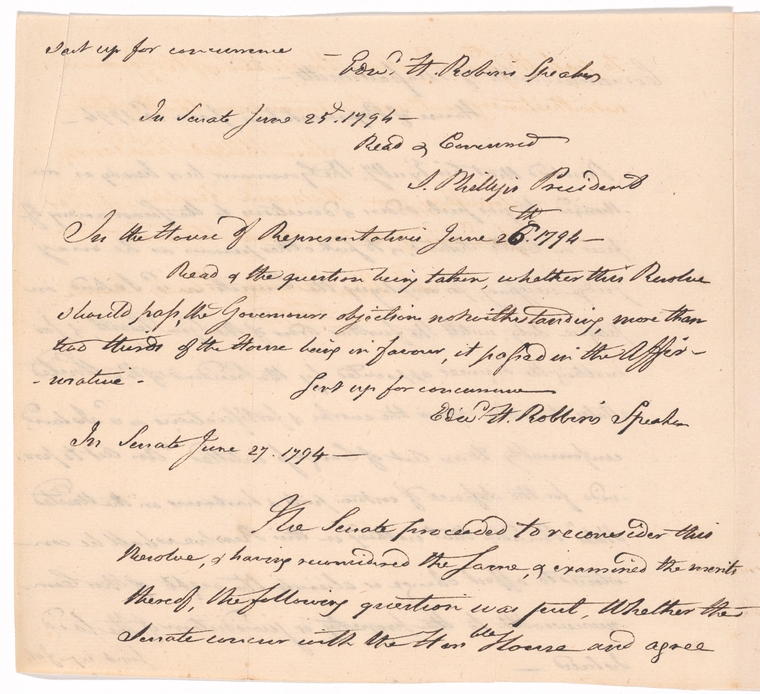 sent up for concurrence —
Edwd. H. Robins Speaker
In Senate June 25d. 1794 —
Read & Concurred
S. Phillips President
In the House of Representatives June 26th. 1794 —
Read & the question being taken, whether this Resolve
should pass, the Governours objections notwithstanding, more than
two thirds of the House being in favour, it passed in the Affir-
-mative -
Sent up for concurrence
Edwd. H. Robbins Speaker
In Senate June 27. 1794 —
The Senate proceeded to reconsider this
Resolve, & having reconsidered the same, & examined the merits
thereof, the following question was put, Whether the
Senate concur with the Honble House and agree